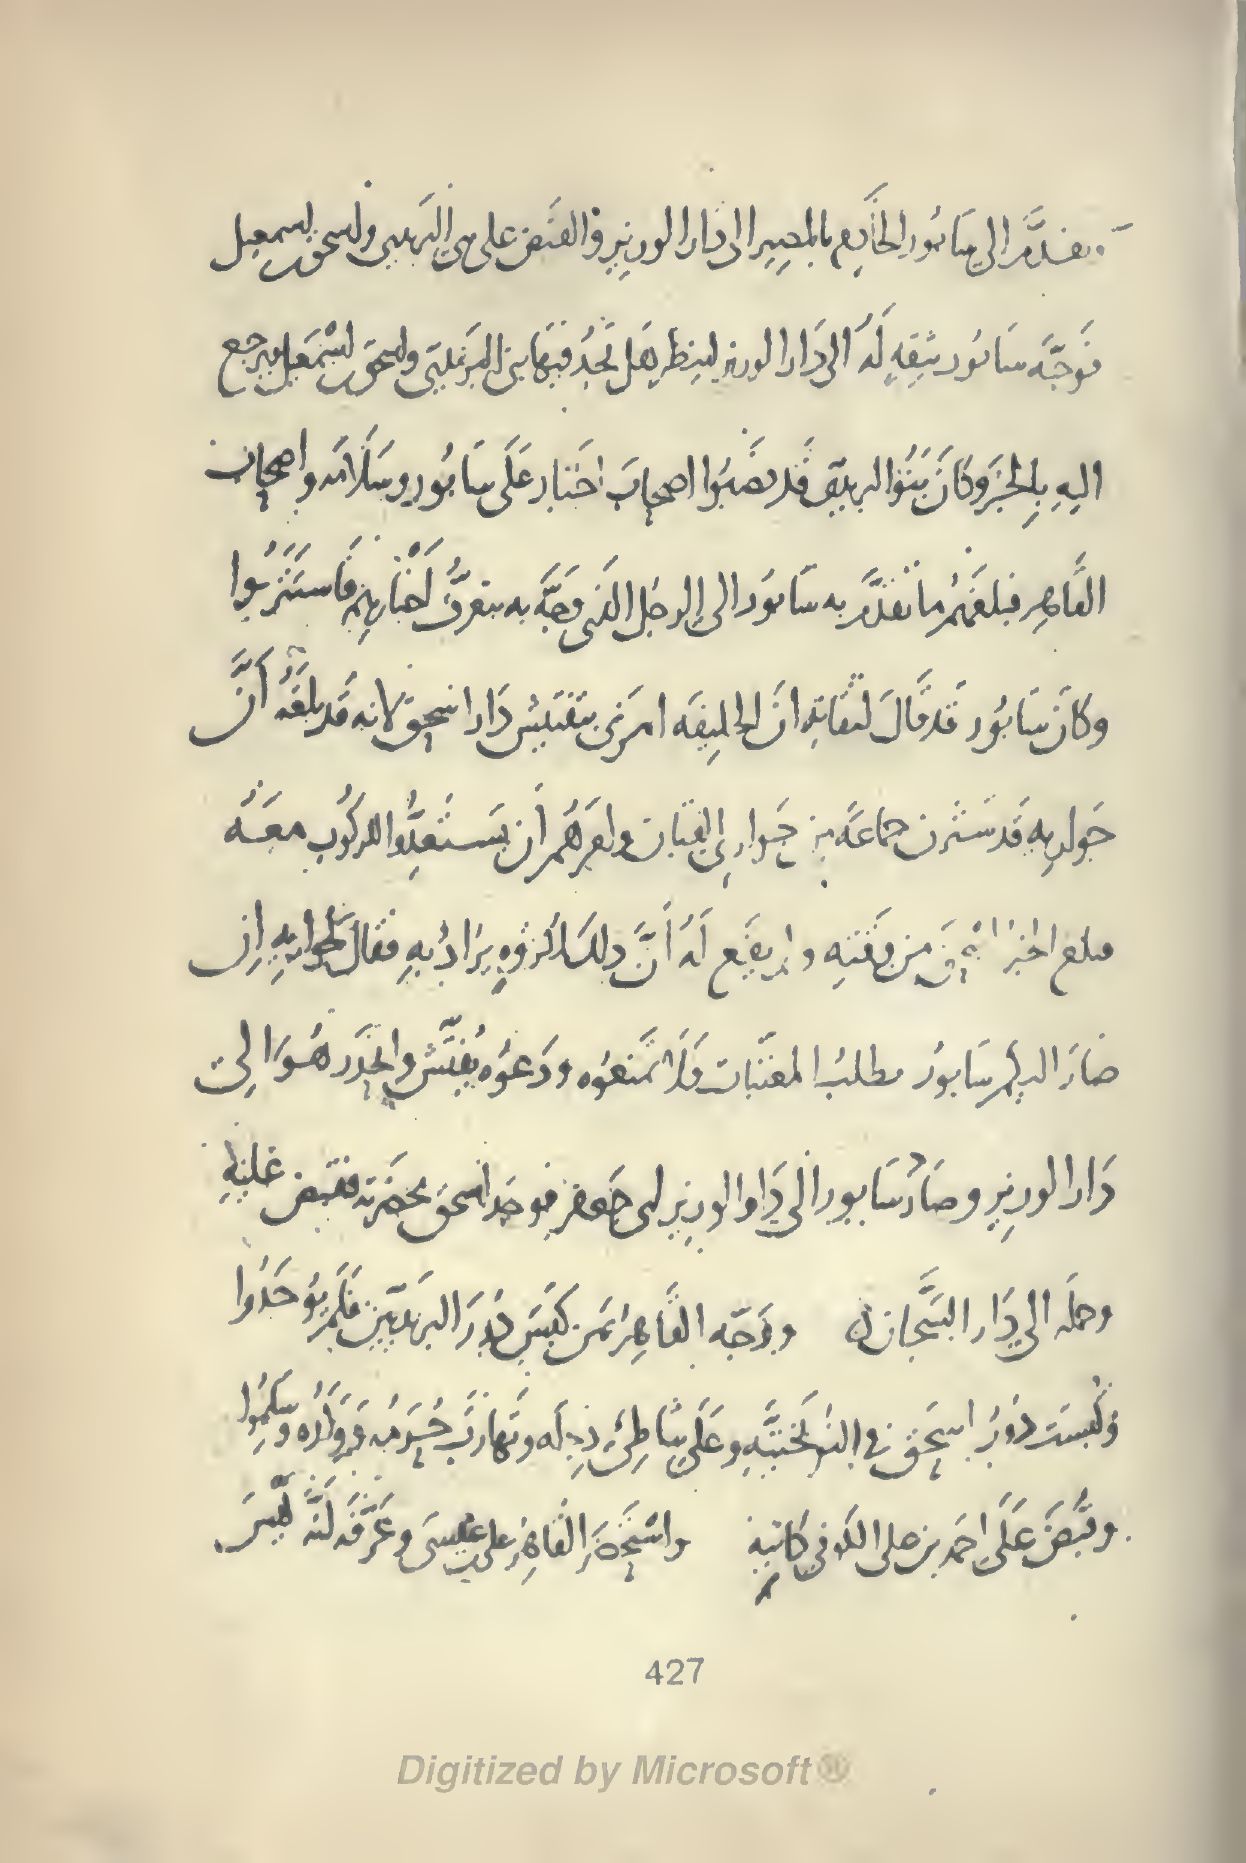 وتقدَّمَ الى سَابُور الخَادِم بالمصِير الى دَار الوَزِيرِ والقَبْض على بني البَريدِي واسحق بن اسمعيل
فَوجَّهَ سَابُور بثِقِةٍ لَهُ الى دَار الوزير لينظر هَل يَجِدُ فيهَا بني البَريديّ واسحق بن اسْمَعيل ويرجع
اليهِ بِالخَبَر وكَانَ بَنُو البريديّ قَد نصَبُوا اصحابَ اخبَار عَلَى سَابُور وسَلَامَه واصحاب
القَاهِر فبلغَهُمْ ما تقدَّمَ به سَابُور الى الرجُل الذى وَجَّهَ به يتعرَّفُ اخبَارهِم فَاستَتَرُوا
وكَانَ سَابُور قَد قَالَ لثقَاتِهِ انَّ الخليفَه امرَنى بتفتيش دَار اسحق لانه قَد بلغَهُ أنَّ
جَوارِيه قَد سَتَرن جماعَه من جَوارى القيَان وامَرهُم أن يَستَعِدُّوا للركُوبِ معَهُ
فبلغ الخبرُ اسْحق من ثِقَتِهِ ولم يقَع لَهُ أنَّ ذلكَ لمكرُوهٍ يُرَادُ بهِ فقَالَ لجواريهِ إن
صَارَ اليكم سَابورُ يطلبُ المغنّيَات فَلَا تَمنَعُوه ودَعوُه يُفَتّش وانحَدَر هُوَ الى
دَار الوَزِيرِ وصَارَ سَابور الى دَار الوزير ابى جَعفر فوجَد اسحق بحضْرَته فقَبَض عَليْهِ
وحمله الى دَار السَّجَان ه وَوَجّه القَاهِرُ بمَن كَبَسَ دُورَ البَريديّين فَلَم يُوجَدُوا
وَكُبِسَت دُورُ اسحَق في النوبَخْتيّه وعَلَى شَاطئ دِجلَه وتهَارَبَ حُرَمُه وَوَلَدُه وسَلِمُوا
وقَبَضَ عَلَى احمَد بن على الكوفى كَاتبِهِ واسْتَحضَرَ القَاهِرُ على بن عِيسَى وعَرَّفَه انَّه ليْسَ
427
Digitized by Microsoft®